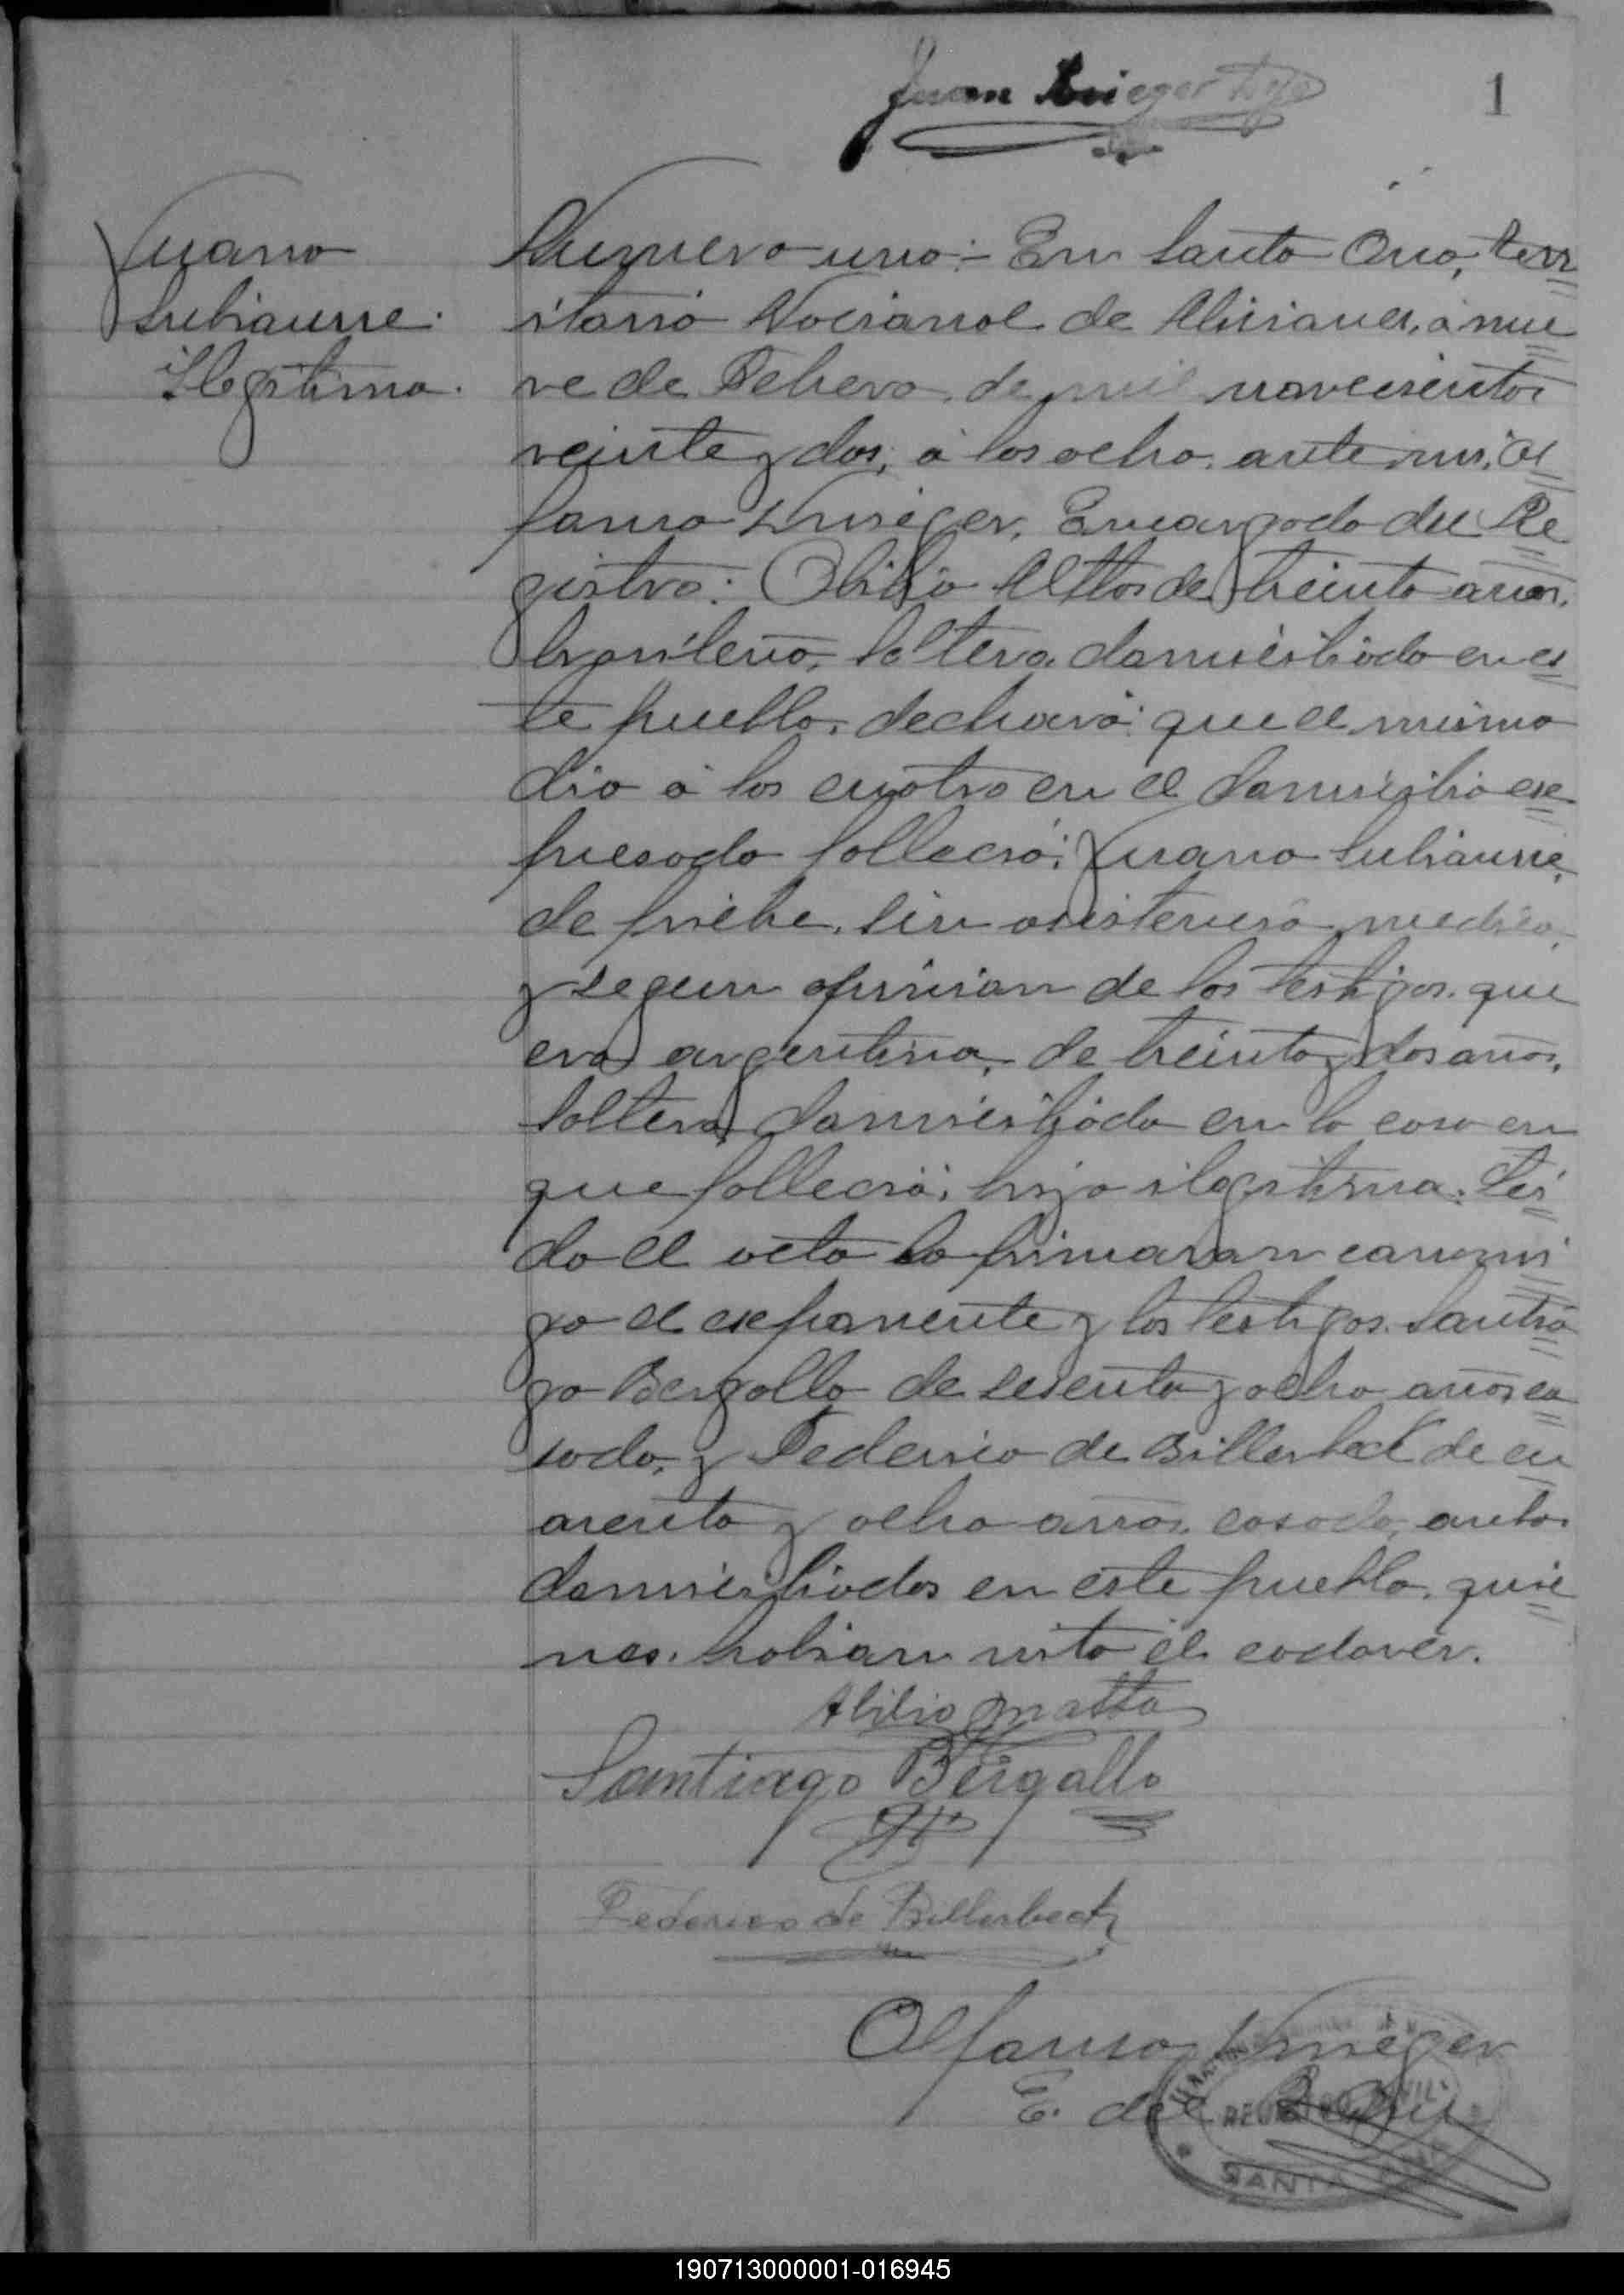 Juan Krieger hijo
1
Juana
Subiaurre.
Ilegitima.
Numero uno:- En Santa Ana, terr
itorio Nacional de Misiones, á nue
ve de Febrero de mil novecientos
veinte y dos, á las ocho, ante mi, Al
fonso Krieger, Encargado del Re
gistro: Abilio Mattos de treinta años,
brasilero, soltero, domiciliado en es
te pueblo, declaró: que el mismo
dia á las cuatro en el domicilio ex
presado falleció: Juana Subiaurre,
de fiebre, sin asistencia medica,
y segun opinion de los testigos, que
era argentina, de treinta y dos años,
soltera, domiciliada en la casa en
que falleció; hija ilegitima. Lei
da el acta la firmaron conmi
go el exponente y los testigos: Santia
go Bergallo de sesenta y ocho años, ca
sado, y Federico de Billerbeck de cu
arenta y ocho años, casado, ambos
domiciliados en este pueblo, quie
nes habian visto el cadaver.
Abilio Matto
Santiago Bergallo
Federico de Billerbeck
Alfonso Krieger
E. del Reg
REGISTRO CIVIL
SANTA ANA
190713000001-016945